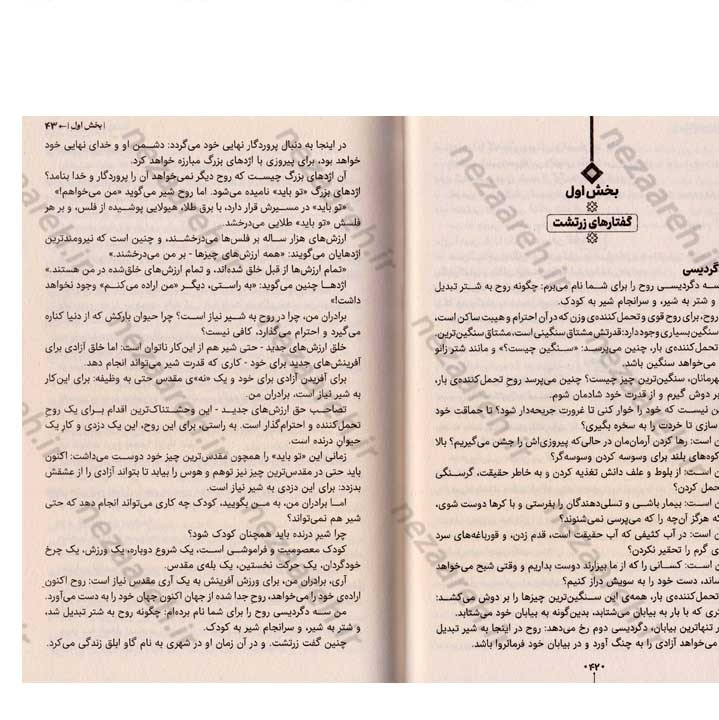 بخش اول
گفتارهای زرتشت
گردیسی
سه دگردیسی روح را برای شما نام می‌برم: چگونه روح به شتر تبدیل
و شتر به شیر، و سرانجام شیر به کودک.
روح، برای روح قوی و تحمل‌کننده‌ی وزن که در آن احترام و هیبت ساکن است،
سنگین بسیاری وجود دارد: قدرتش مشتاق سنگینی است، مشتاق سنگین‌ترین.
تحمل‌کننده‌ی بار، چنین می‌پرسد: «سنگین چیست؟» و مانند شتر زانو
می‌خواهد سنگین باشد.
هرمانان، سنگین‌ترین چیز چیست؟ چنین می‌پرسد روح تحمل‌کننده‌ی بار،
بر دوش گیرم و از قدرت خود شادمان شوم.
ن نیست که خود را خوار کنی تا غرورت جریحه‌دار شود؟ تا حماقت خود
سازی تا خردت را به سخره بگیری؟
ن است: رها کردن آرمان‌مان در حالی‌که پیروزی‌اش را جشن می‌گیریم؟ بالا
کوه‌های بلند برای وسوسه کردن وسوسه‌گر؟
ن است: از بلوط و علف دانش تغذیه کردن و به خاطر حقیقت، گرسنگی
حمل کردن؟
ن است: بیمار باشی و تسلی‌دهندگان را بفرستی و با کرها دوست شوی،
که هرگز آن‌چه را که می‌پرسی نمی‌شنوند؟
ن است: در آب کثیفی که آب حقیقت است، قدم زدن، و قورباغه‌های سرد
ی گرم را تحقیر نکردن؟
ن است: کسانی را که از ما بیزارند دوست بداریم و وقتی شبح می‌خواهد
ساند، دست خود را به سویش دراز کنیم؟
تحمل‌کننده‌ی بار، همه‌ی این سنگین‌ترین چیزها را بر دوش می‌کشد:
تری که با بار به بیابان می‌شتابد، بدین‌گونه به بیابان خود می‌شتابد.
ر تنهاترین بیابان، دگردیسی دوم رخ می‌دهد: روح در اینجا به شیر تبدیل
می‌خواهد آزادی را به چنگ آورد و در بیابان خود فرمانروا باشد.
۴۲
| بخش اول | ← ۴۳
در اینجا به دنبال پروردگار نهایی خود می‌گردد: دشمن او و خدای نهایی خود
خواهد بود، برای پیروزی با اژدهای بزرگ مبارزه خواهد کرد.
آن اژدهای بزرگ چیست که روح دیگر نمی‌خواهد آن را پروردگار و خدا بنامد؟
اژدهای بزرگ «تو باید» نامیده می‌شود. اما روح شیر می‌گوید «من می‌خواهم!»
«تو باید» در مسیرش قرار دارد، با برق طلا، هیولایی پوشیده از فلس، و بر هر
فلسش «تو باید» طلایی می‌درخشد.
ارزش‌های هزار ساله بر فلس‌ها می‌درخشند، و چنین است که نیرومندترین
اژدهایان می‌گویند: «همه ارزش‌های چیزها - بر من می‌درخشند.»
«تمام ارزش‌ها از قبل خلق شده‌اند، و تمام ارزش‌های خلق‌شده در من هستند.»
اژدها چنین می‌گوید: «به راستی، دیگر «من اراده می‌کنم» وجود نخواهد
داشت!»
برادران من، چرا در روح به شیر نیاز است؟ چرا حیوان بارکش که از دنیا کناره
می‌گیرد و احترام می‌گذارد، کافی نیست؟
خلق ارزش‌های جدید - حتی شیر هم از این‌کار ناتوان است: اما خلق آزادی برای
آفرینش‌های جدید برای خود - کاری که قدرت شیر می‌تواند انجام دهد.
برای آفریدن آزادی برای خود و یک «نه»ی مقدس حتی به وظیفه: برای این‌کار
به شیر نیاز است، برادران من.
تصاحب حق ارزش‌های جدید - این وحشتناک‌ترین اقدام برای یک روح
تحمل‌کننده و احترام‌گذار است. به راستی، برای این روح، این یک دزدی و کارِ یک
حیوان درنده است.
زمانی این «تو باید» را همچون مقدس‌ترین چیز خود دوست می‌داشت: اکنون
باید حتی در مقدس‌ترین چیز نیز توهم و هوس را بیابد تا بتواند آزادی را از عشقش
بدزدد: برای این دزدی به شیر نیاز است.
اما برادران من، به من بگویید، کودک چه کاری می‌تواند انجام دهد که حتی
شیر هم نمی‌تواند؟
چرا شیرِ درنده باید همچنان کودک شود؟
کودک معصومیت و فراموشی است، یک شروع دوباره، یک ورزش، یک چرخ
خودگردان، یک حرکت نخستین، یک بله‌ی مقدس.
آری، برادران من، برای ورزش آفرینش به یک آری مقدس نیاز است: روح اکنون
اراده‌ی خود را می‌خواهد، روح جدا شده از جهان اکنون جهان خود را به دست می‌آورد.
من سه دگردیسی روح را برای شما نام برده‌ام: چگونه روح به شتر تبدیل شد،
و شتر به شیر، و سرانجام شیر به کودک.
چنین گفت زرتشت. و در آن زمان او در شهری به نام گاو ابلق زندگی می‌کرد.
nezaareh.ir